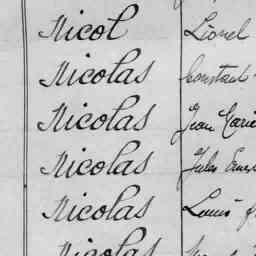 Nicol Lionel
Nicolas Constant
Nicolas Jean Marie
Nicolas Jules
Nicolas Louis
Nicolas